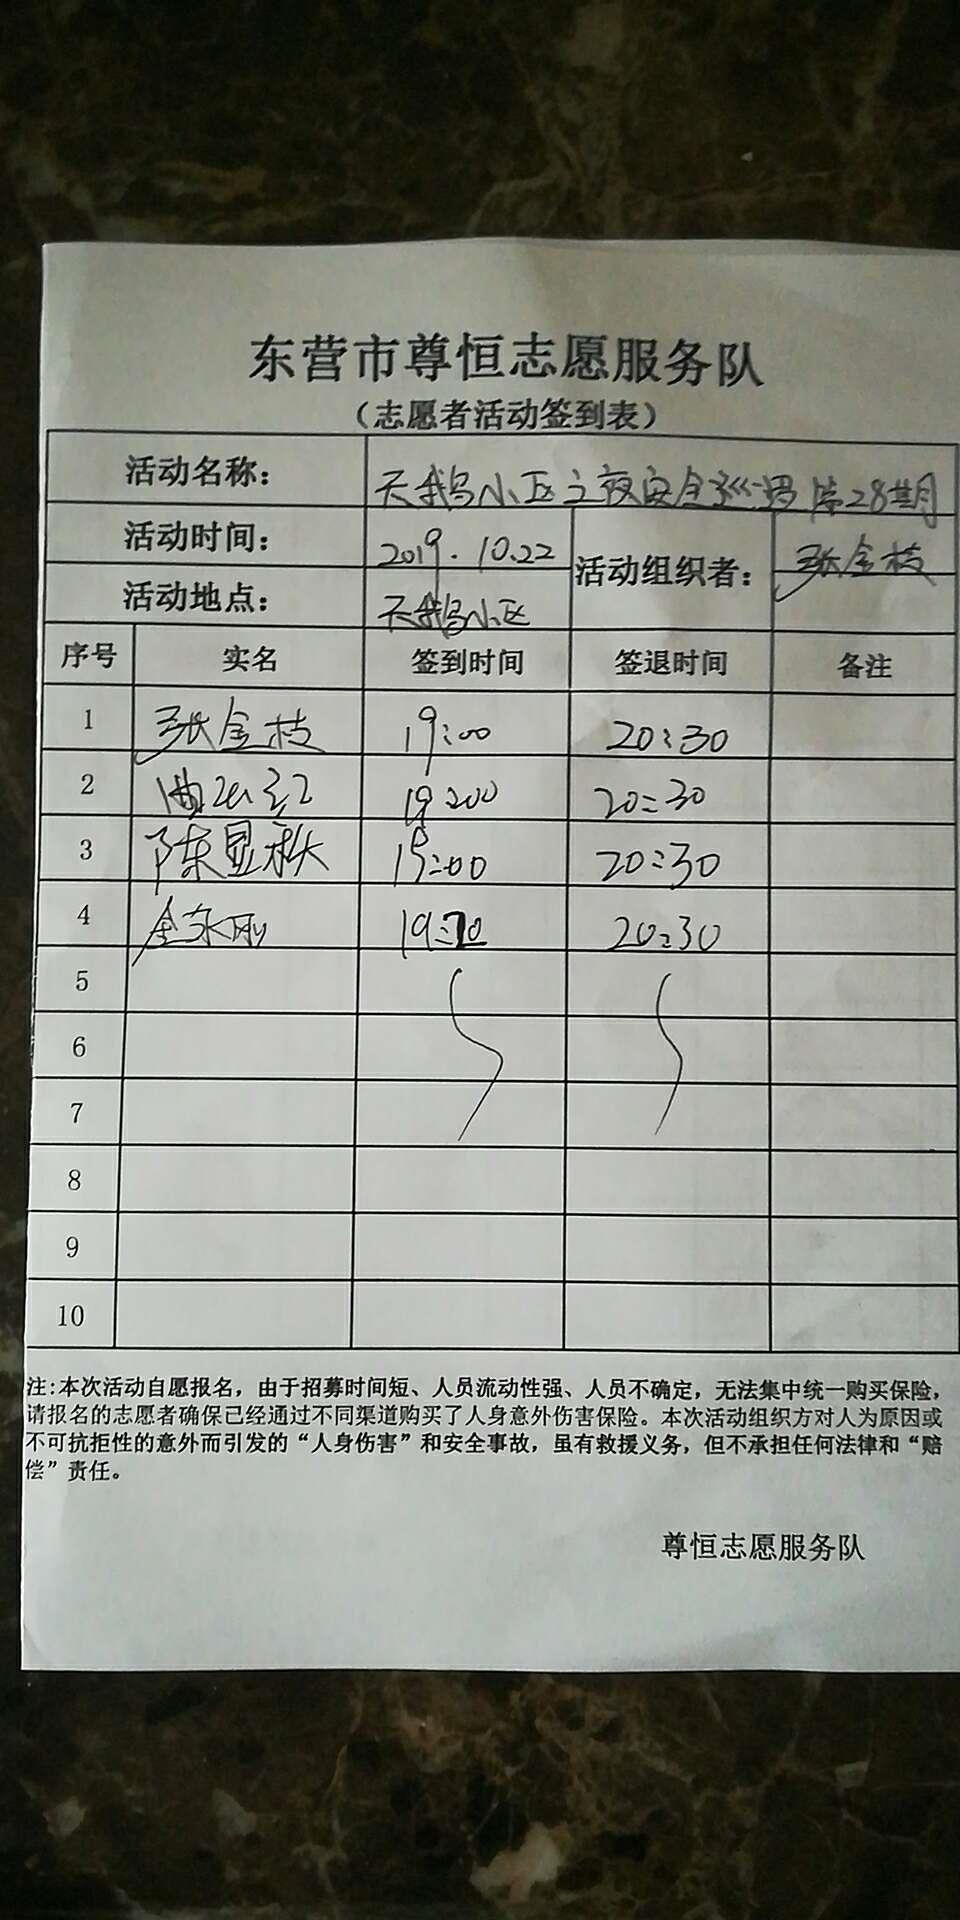 东营市尊恒志愿服务队
（志愿者活动签到表）
活动名称： 天鹅小区之夜安全巡逻 第28期
活动时间： 2019.10.22 活动组织者： 张金枝
活动地点： 天鹅小区
序号 实名 签到时间 签退时间 备注
1 张金枝 19:00 20:30
2 19:00 20:30
3 陈显秋 19:00 20:30
4 金东刚 20:30
5
6
7
8
9
10
注：本次活动自愿报名，由于招募时间短、人员流动性强、人员不确定，无法集中统一购买保险，
请报名的志愿者确保已经通过不同渠道购买了人身意外伤害保险。本次活动组织方对人为原因或
不可抗拒性的意外而引发的“人身伤害”和安全事故，虽有救援义务，但不承担任何法律和“赔
偿”责任。
尊恒志愿服务队